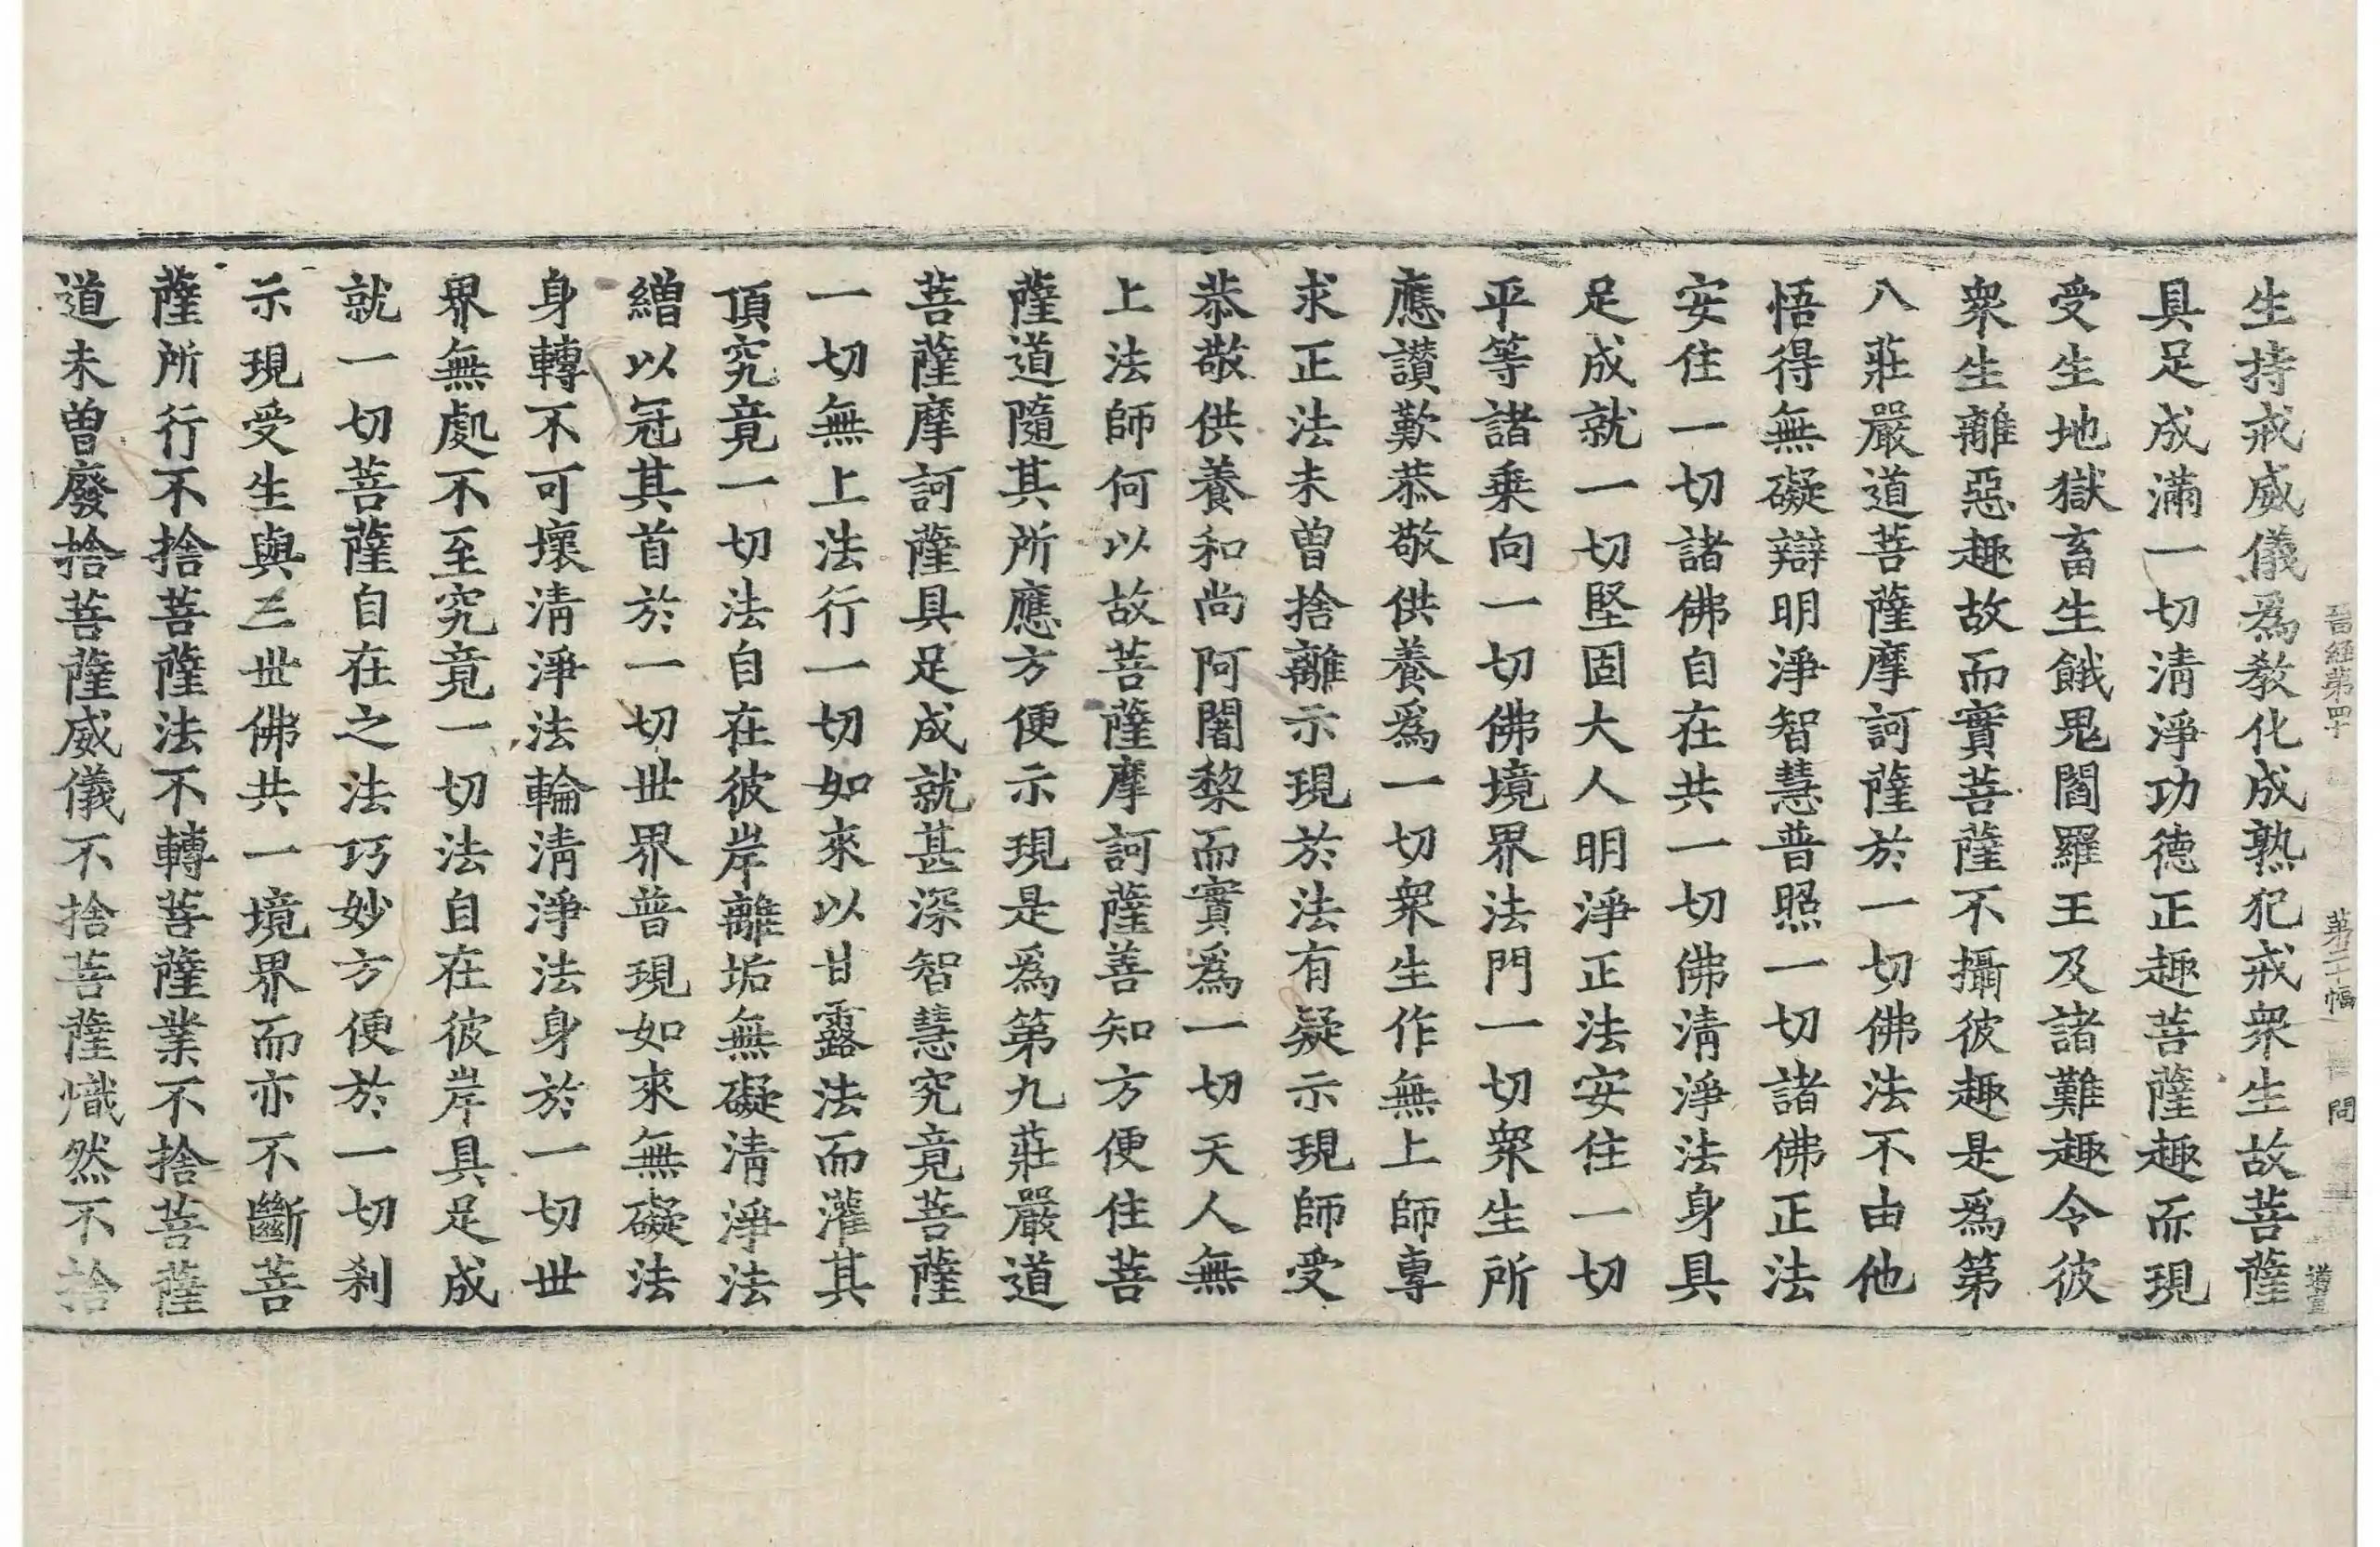 晉經第四十 第二十幅 問
生持戒威儀爲教化成熟犯戒衆生故菩薩
具足成滿一切清淨功德正趣菩薩趣而現
受生地獄畜生餓鬼閻羅王及諸難趣令彼
衆生離惡趣故而實菩薩不攝彼趣是爲第
八莊嚴道菩薩摩訶薩於一切佛法不由他
悟得無礙辯明淨智慧普照一切諸佛正法
安住一切諸佛自在共一切佛清淨法身具
足成就一切堅固大人明淨正法安住一切
平等諸乗向一切佛境界法門一切衆生所
應讃歎恭敬供養爲一切衆生作無上師專
求正法未曽捨離示現於法有疑示現師受
恭敬供養和尚阿闍黎而實爲一切天人無
上法師何以故菩薩摩訶薩善知方便住菩
薩道隨其所應方便示現是爲第九莊嚴道
菩薩摩訶薩具足成就甚深智慧究竟菩薩
一切無上法行一切如來以甘露法而灌其
頂究竟一切法自在彼岸離垢無礙清淨法
繒以冠其首於一切世界普現如來無礙法
身轉不可壞清淨法輪清淨法身於一切世
界無處不至究竟一切法自在彼岸具足成
就一切菩薩自在之法巧妙方便於一切刹
示現受生與三世佛共一境界而亦不斷菩
薩所行不捨菩薩法不轉菩薩業不捨菩薩
道未曽廢捨菩薩威儀不捨菩薩熾然不捨